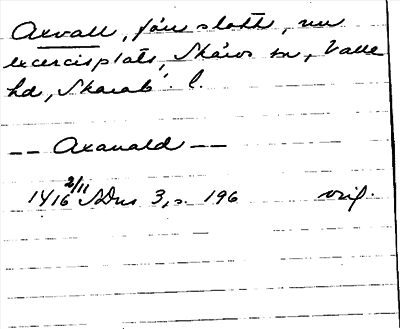 Axvall, förr slott, nu
excercisplats, Skärvs sn, Valle
hd, Skarab. l.
-- Axauald --
1416 2/11 SDns 3, s. 196 orig.